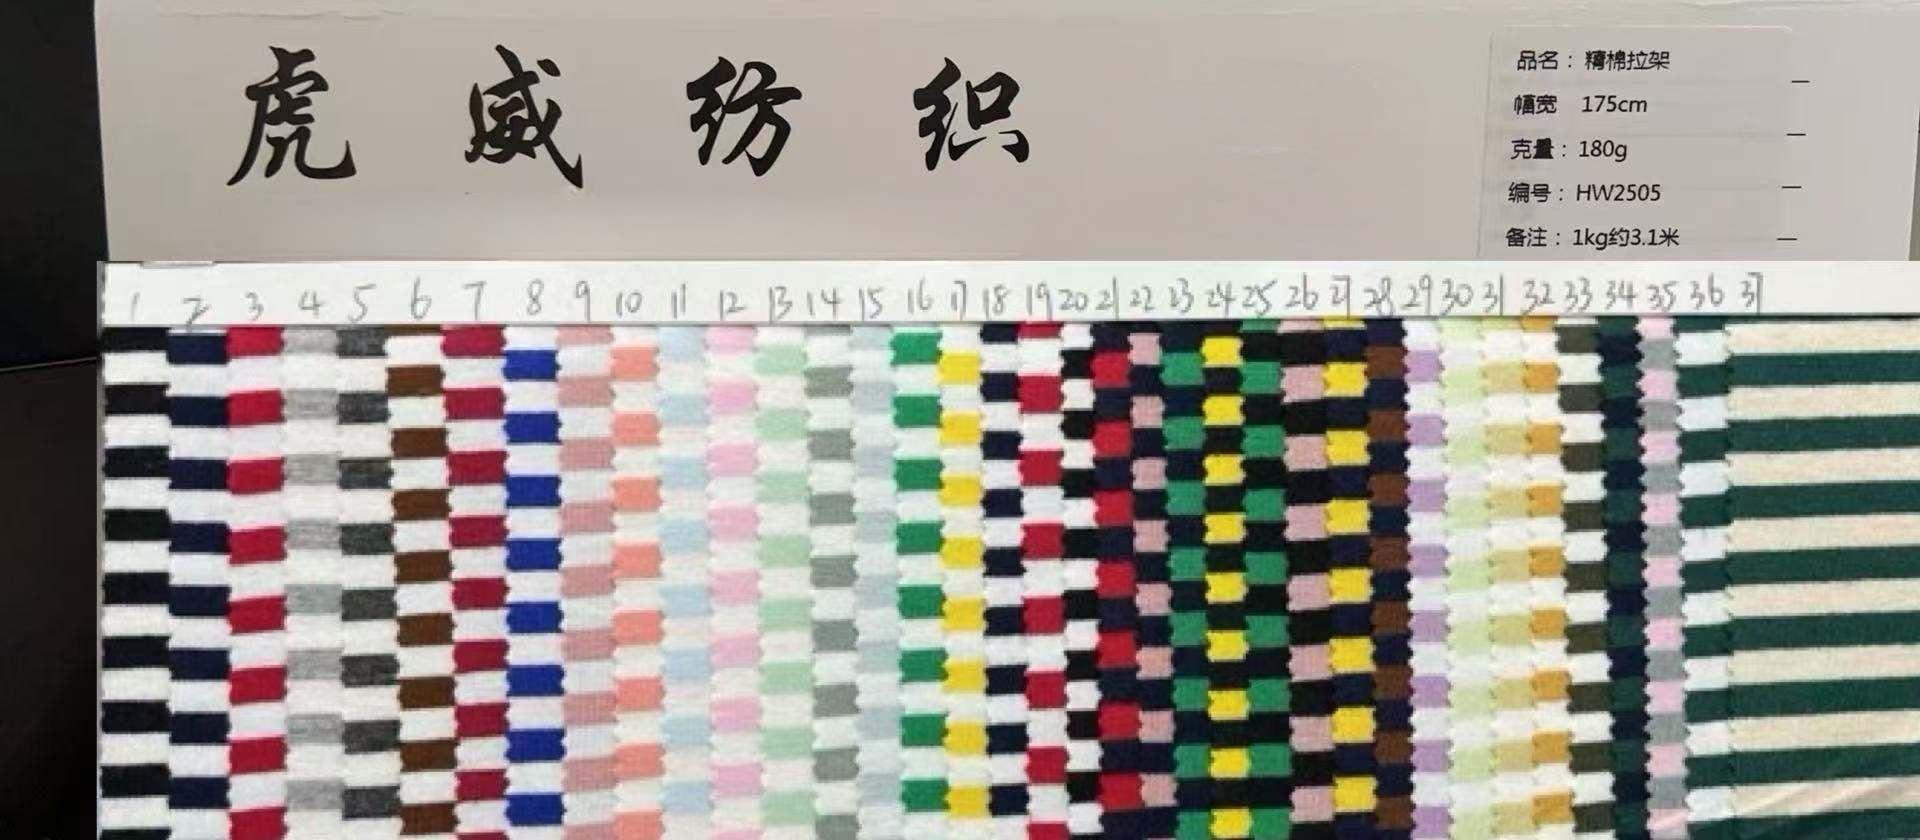 虎威纺织
品名：精棉拉架
幅宽 175cm
克量：180g
编号：HW2505
备注：1kg约3.1米
1 2 3 4 5 6 7 8 9 10 11 12 13 14 15 16 17 18 19 20 21 22 23 24 25 26 27 28 29 30 31 32 33 34 35 36 37